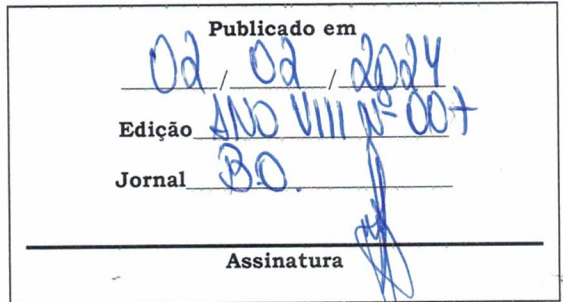 Publicado em
02 / 02 / 2024
Edição ANO VIII Nº 007
Jornal B.O.
Assinatura